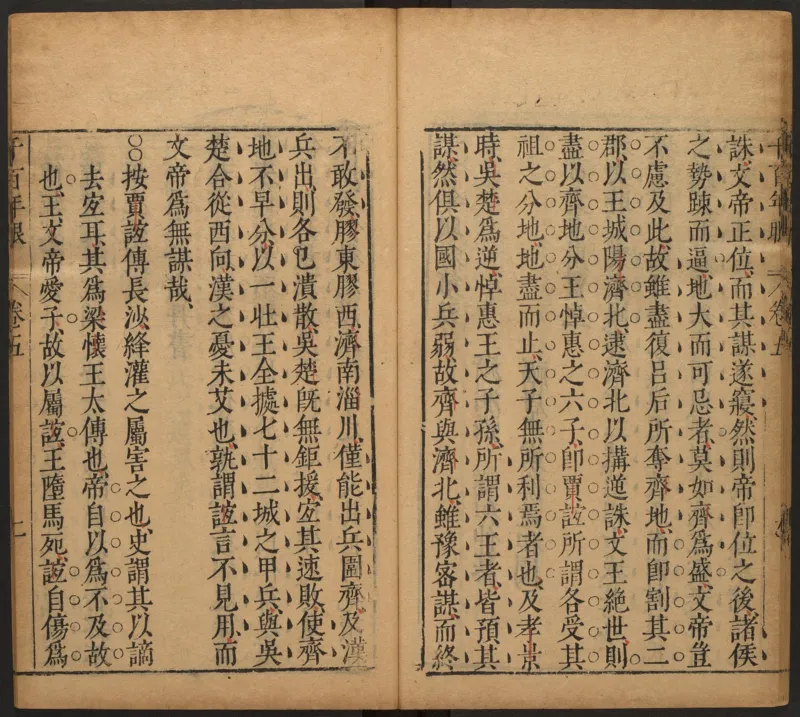 誅文帝正位而其謀遂寢然則帝卽位之後諸侯
之勢踈而逼地大而可忌者莫如齊爲盛文帝豈
不慮及此故雖盡復呂后所奪齊地而卽割其二
郡以王城陽濟北逮濟北以搆逆誅文王絶世則
盡以齊地分王悼惠之六子卽賈誼所謂各受其
祖之分地地盡而止天子無所利焉者也及孝景
時吳楚爲逆悼惠王之子孫所謂六王者皆預其
謀然俱以國小兵弱故齊與濟北雖豫密謀而終
不敢發膠東膠西濟南淄川僅能出兵圍齊及漢
兵出則各已潰散吳楚旣無鉅援宐其速敗使齊
地不早分以一壯王全據七十二城之甲兵與吳
楚合從西向漢之憂未艾也孰謂誼言不見用而
文帝爲無謀哉
○○按賈誼傳長沙絳灌之屬害之也史謂其以謫
去宐耳其爲梁懷王太傅也帝自以爲不及故
也王文帝愛子故以屬誼王墮馬死誼自傷爲
千百年眼 卷五 七